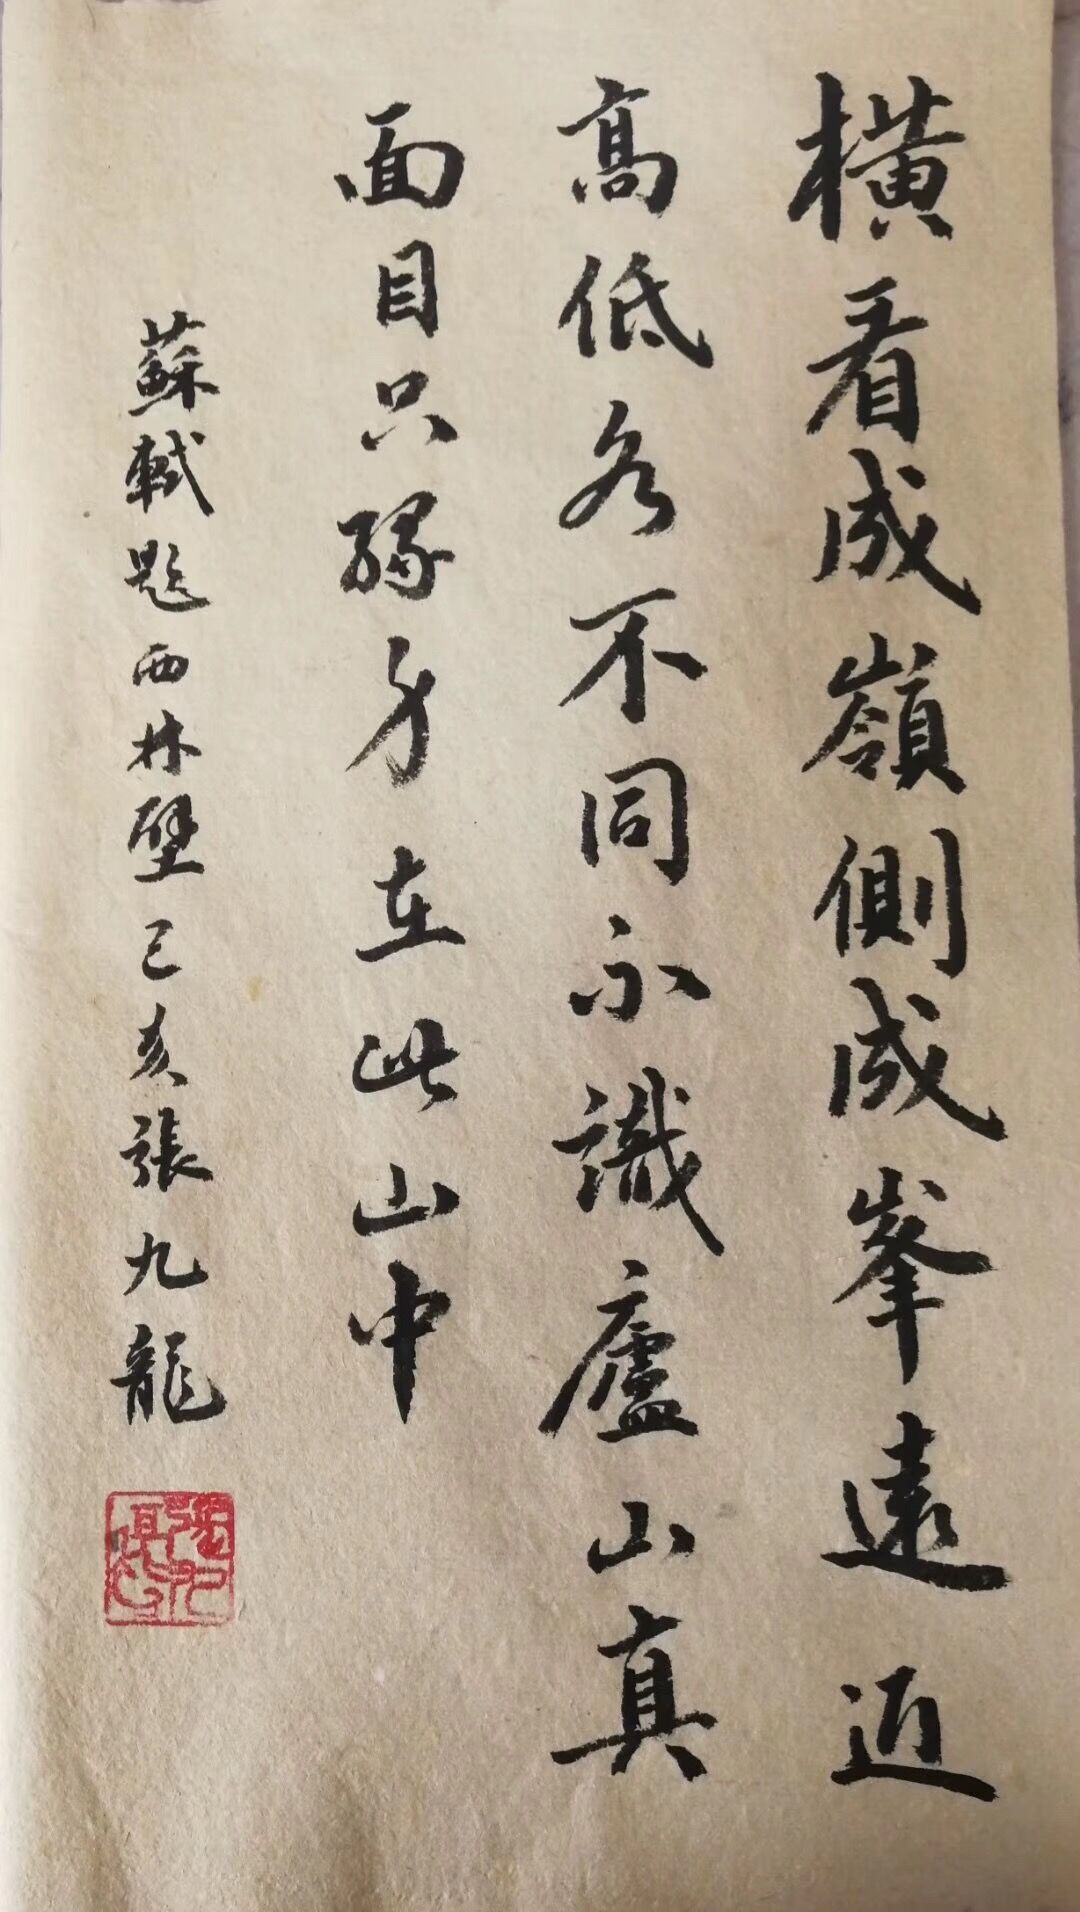 橫看成嶺側成峯遠近
高低各不同不識廬山真
面目只緣身在此山中
蘇軾題西林壁己亥張九龍